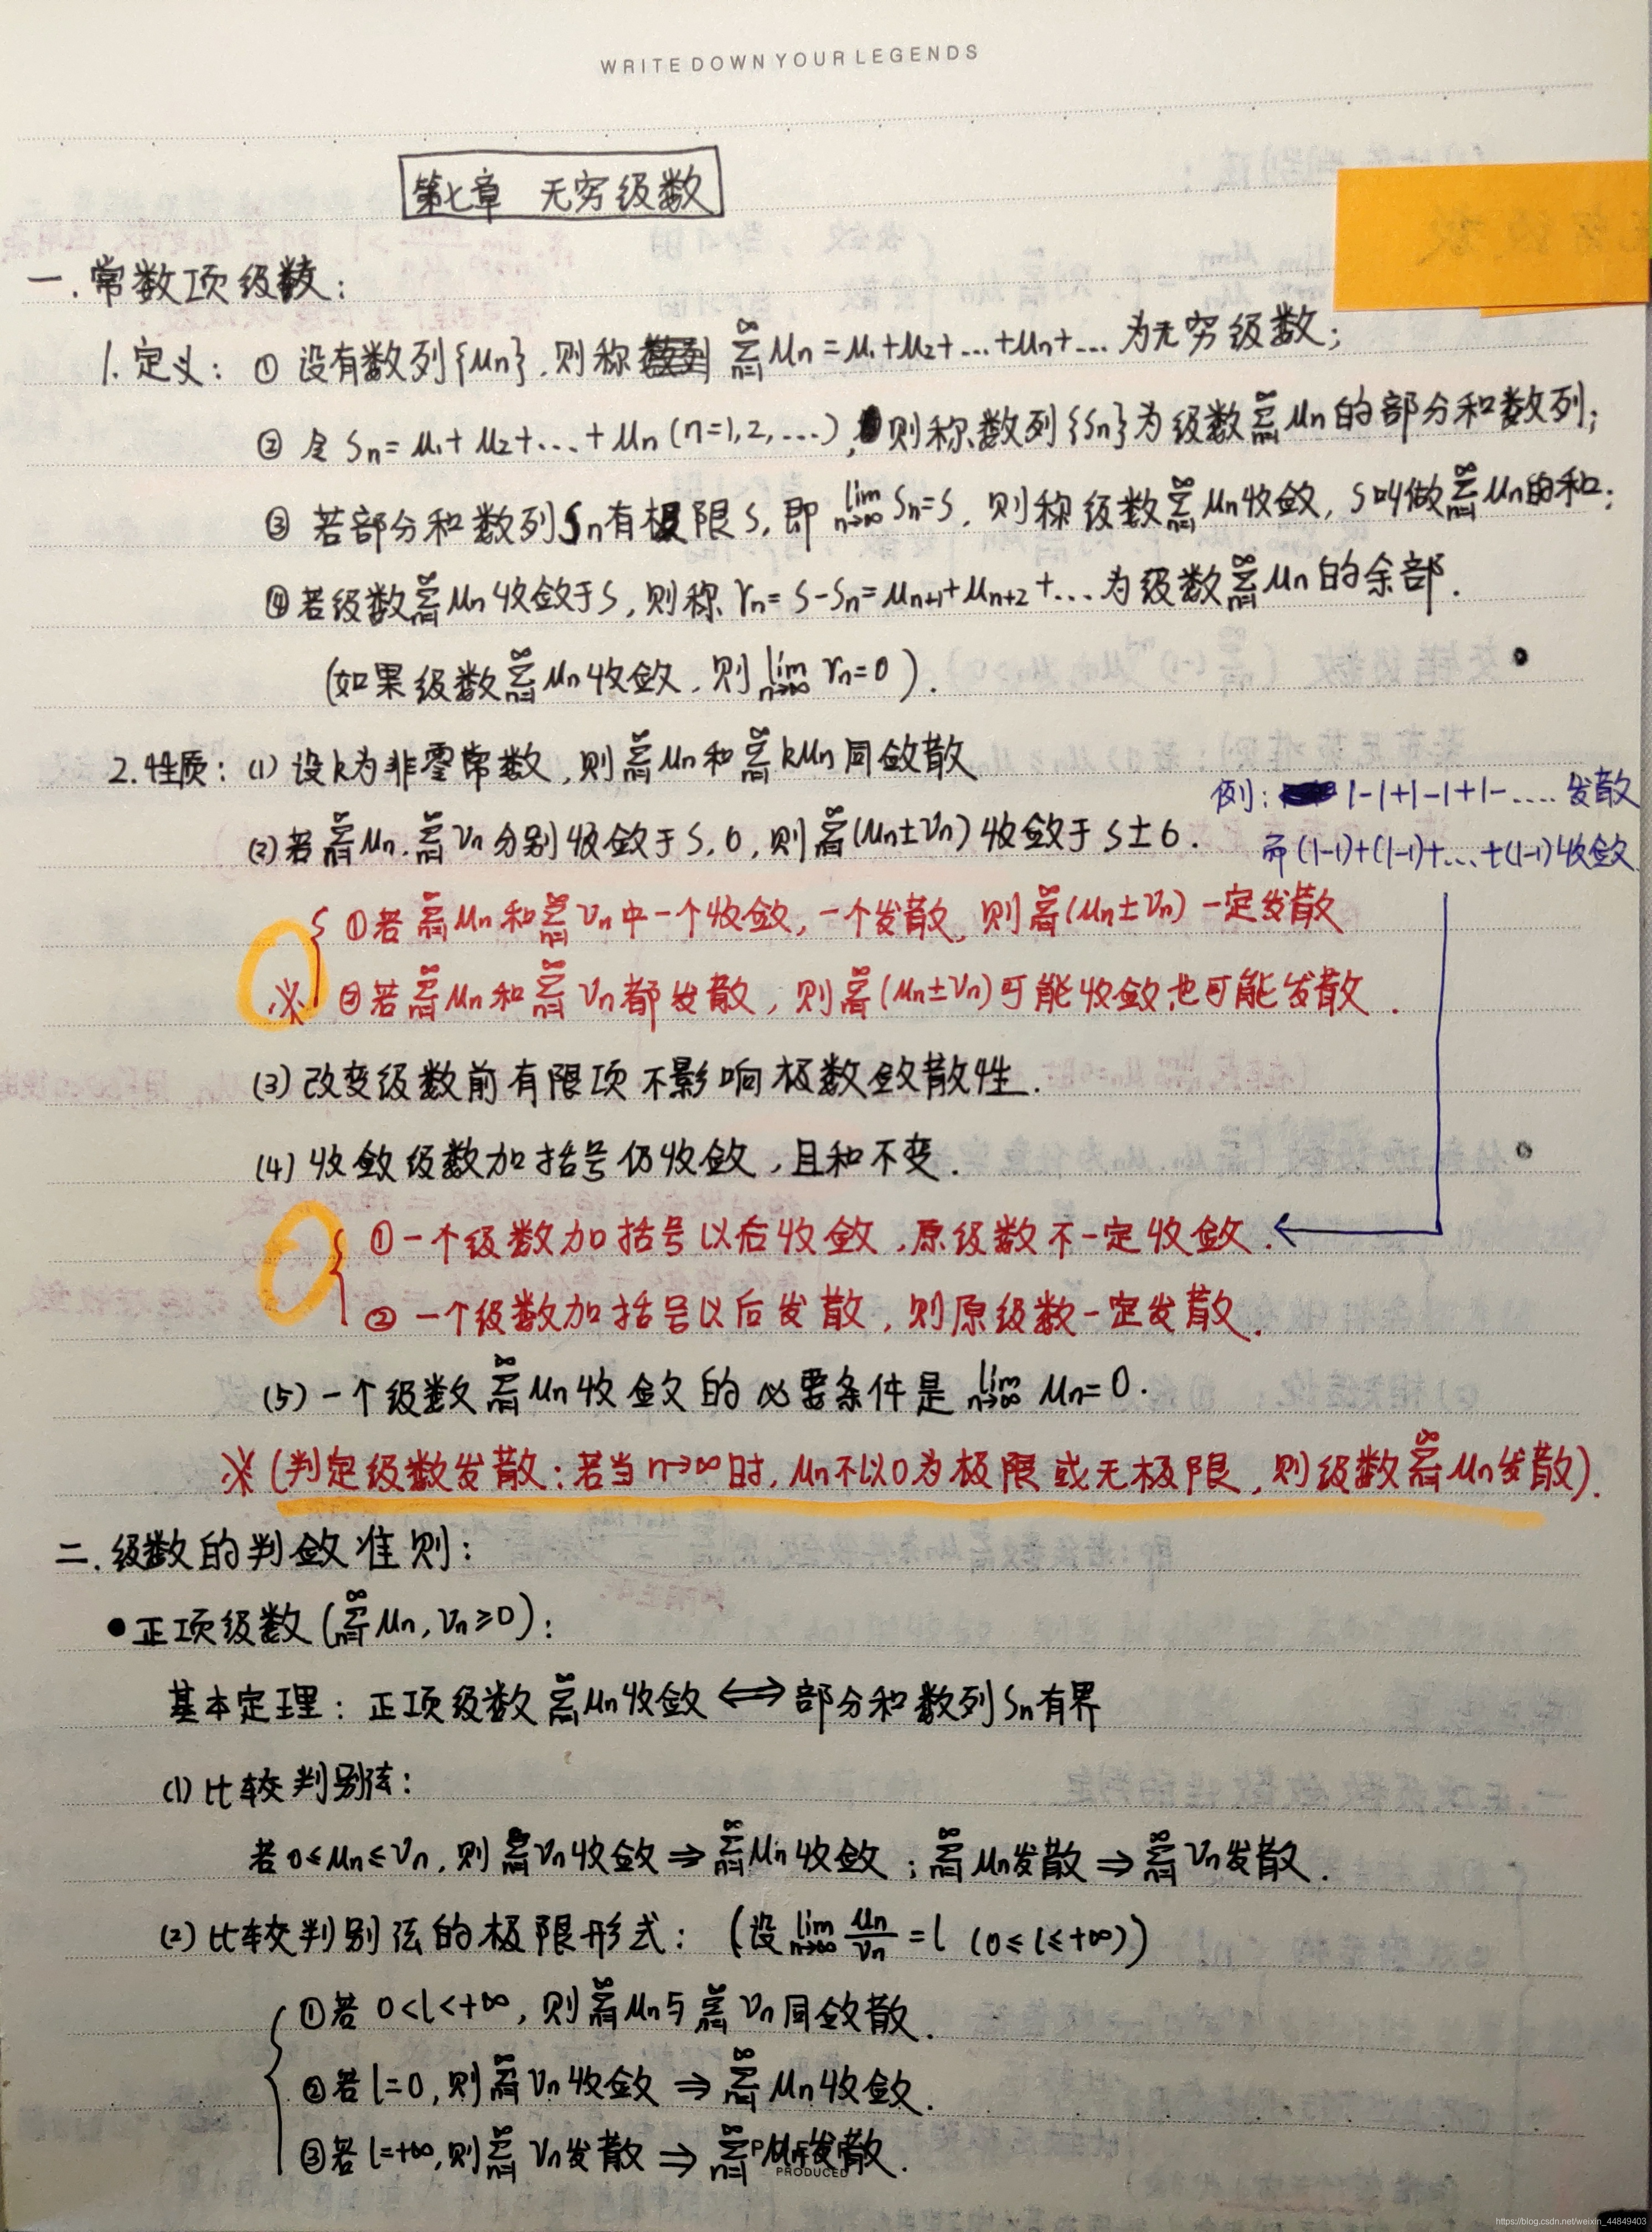 WRITE DOWN YOUR LEGENDS
第七章 无穷级数
一.常数项级数:
1.定义: ① 设有数列{μn},则称 ∞∑n=1 μn=μ1+μ2+...+μn+... 为无穷级数;
② 令 Sn=μ1+μ2+...+μn(n=1,2,...),则称数列{Sn}为级数∞∑n=1 μn的部分和数列;
③ 若部分和数列Sn有极限S,即 lim n→∞ Sn=S,则称级数∞∑n=1 μn收敛,S叫做∞∑n=1 μn的和;
④若级数∞∑n=1 μn收敛于S,则称 rn=S-Sn=μn+1+μn+2+...为级数∞∑n=1 μn的余部.
(如果级数∞∑n=1 μn收敛,则 lim n→∞ rn=0).
2.性质: (1) 设k为非零常数,则∞∑n=1 μn和∞∑n=1 kμn同敛散
例: 1-1+1-1+1-.... 发散
(2)若∞∑n=1 μn.∞∑n=1 νn分别收敛于S,σ,则∞∑n=1(μn±νn)收敛于S±σ.
而(1-1)+(1-1)+...+(1-1)收敛
①若∞∑n=1 μn和∞∑n=1 νn中一个收敛,一个发散,则∞∑n=1(μn±νn)一定发散
※ ②若∞∑n=1 μn和∞∑n=1 νn都发散,则∞∑n=1(μn±νn)可能收敛也可能发散.
(3)改变级数前有限项不影响极数敛散性.
(4)收敛级数加括号仍收敛,且和不变.
①一个级数加括号以后收敛,原级数不一定收敛.
②一个级数加括号以后发散,则原级数一定发散.
(5)一个级数∞∑n=1 μn收敛的必要条件是 lim n→∞ μn=0.
※(判定级数发散:若当n→∞时,μn不以0为极限或无极限,则级数∞∑n=1 μn发散).
二.级数的判敛准则:
●正项级数(∞∑n=1 μn,νn≥0):
基本定理:正项级数∞∑n=1 μn收敛⟺部分和数列Sn有界
(1)比较判别法:
若0≤μn≤νn,则∞∑n=1 νn收敛⇒∞∑n=1 μn收敛;∞∑n=1 μn发散⇒∞∑n=1 νn发散.
(2)比较判别法的极限形式: (设lim n→∞ μn/νn=l (0≤l≤+∞))
①若 0<l<+∞,则∞∑n=1 μn与∞∑n=1 νn同敛散.
②若l=0,则∞∑n=1 νn收敛⇒∞∑n=1 μn收敛.
③若l=+∞,则∞∑n=1 νn发散⇒∞∑n=1 μn发散.
PRODUCED
https://blog.csdn.net/weixin_44849403